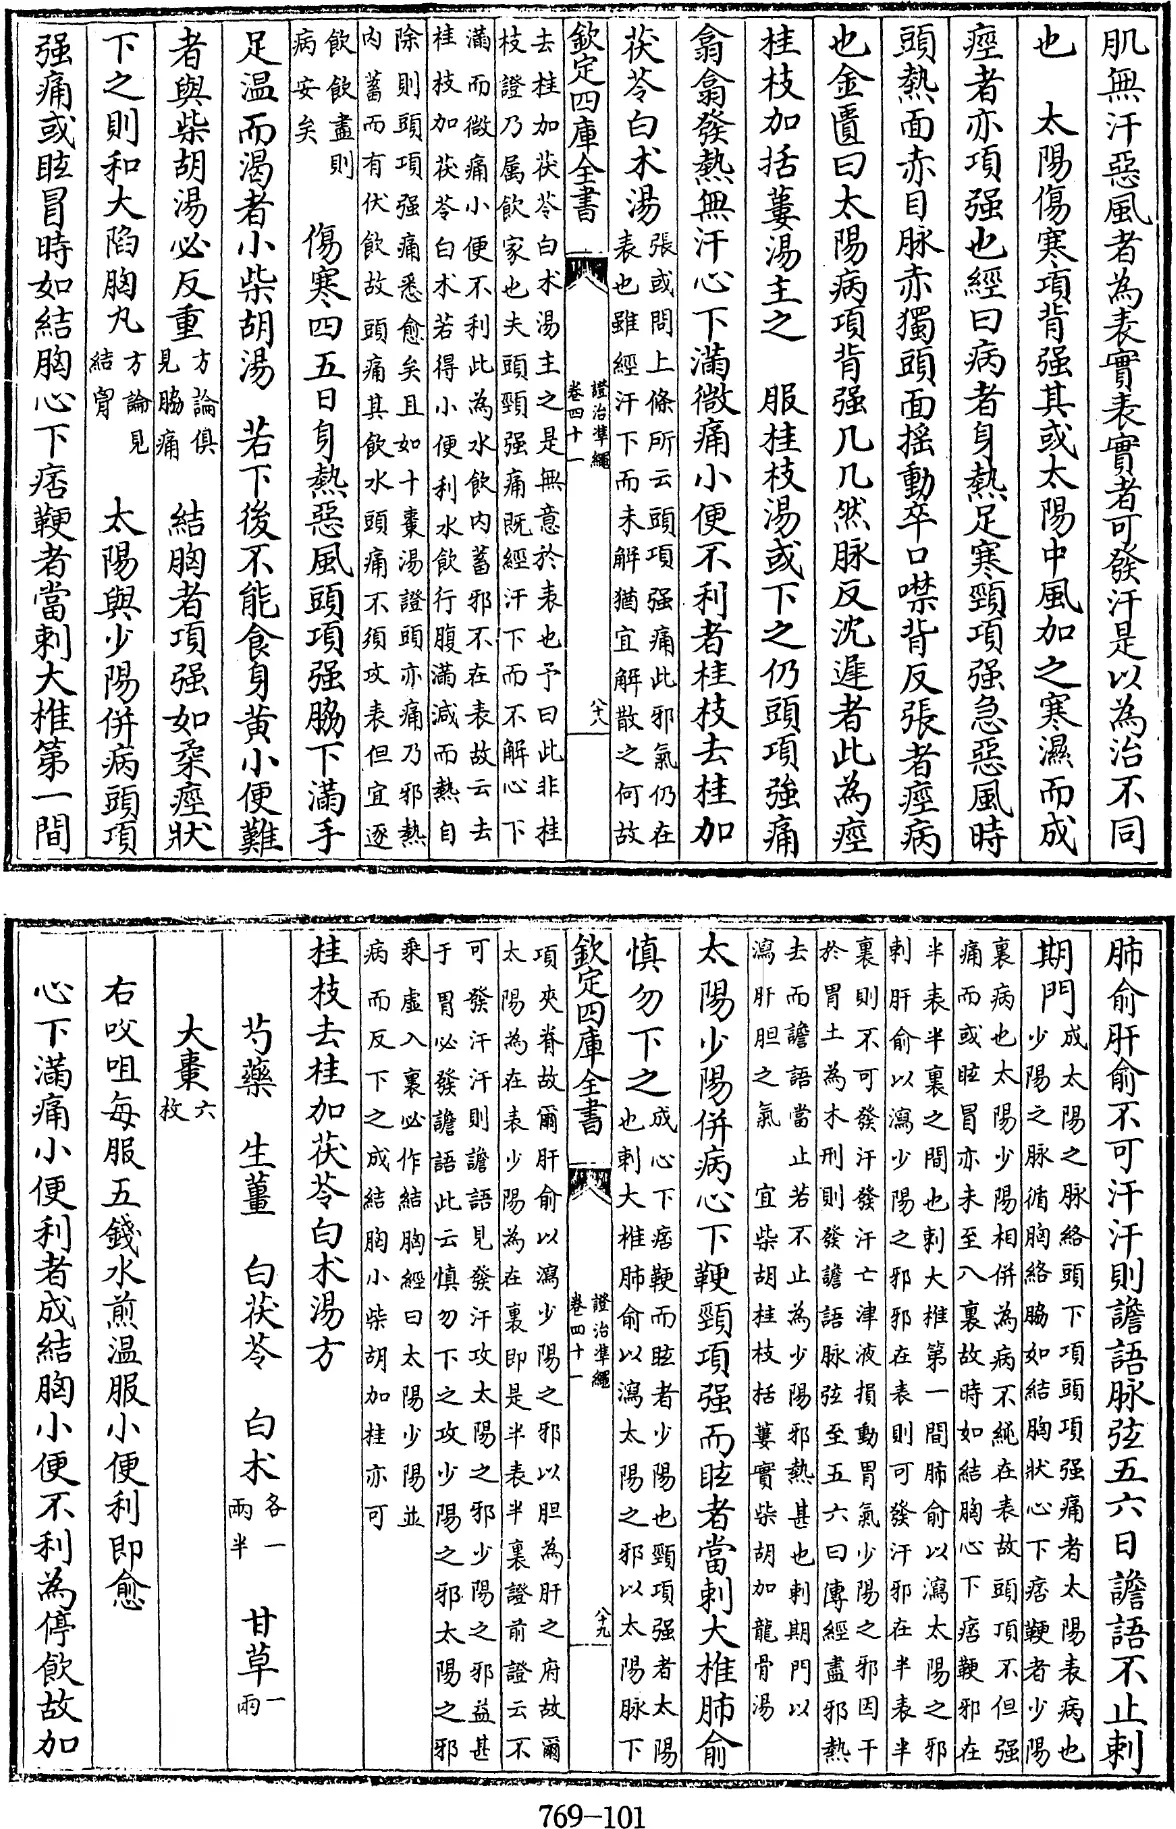 肌無汗惡風者為表實表實者可發汗是以為治不同
也　太陽傷寒項背强其或太陽中風加之寒濕而成
痙者亦項强也經曰病者身熱足寒頸項强急惡風時
頭熱面赤目脉赤獨頭面摇動卒口噤背反張者痙病
也金匱曰太陽病項背强几几然脉反沈遲者此為痙
桂枝加括蔞湯主之　服桂枝湯或下之仍頭項強痛
翕翕發熱無汗心下滿微痛小便不利者桂枝去桂加
茯苓白术湯
張或問上條所云頭項强痛此邪氣仍在
表也雖經汗下而未解猶宜解散之何故
欽定四庫全書
證治準繩
卷四十一
八十八
去桂加茯苓白术湯主之是無意於表也予曰此非桂
枝證乃属飲家也夫頭頸强痛既經汗下而不解心下
滿而微痛小便不利此為水飲内蓄邪不在表故云去
桂枝加茯苓白术若得小便利水飲行腹滿減而熱自
除則頭項强痛悉愈矣且如十棗湯證頭亦痛乃邪熱
内蓄而有伏飲故頭痛其飲水頭痛不須攻表但宜逐
飲飲盡則
病安矣
傷寒四五日身熱惡風頭項强脇下滿手
足温而渴者小柴胡湯　若下後不能食身黄小便難
者與柴胡湯必反重
方論俱
見脇痛
結胸者項强如柔痙狀
下之則和大陷胸丸
方論見
結胷
太陽與少陽併病頭項
强痛或眩冒時如結胸心下痞鞕者當刺大椎第一間
肺俞肝俞不可汗汗則譫語脉弦五六日譫語不止刺
期門
成太陽之脉絡頭下項頭項强痛者太陽表病也
少陽之脉循胸絡脇如結胸狀心下痞鞕者少陽
裏病也太陽少陽相併為病不純在表故頭頂不但强
痛而或眩冒亦未至入裏故時如結胸心下痞鞕邪在
半表半裏之間也刺大椎第一間肺俞以瀉太陽之邪
刺肝俞以瀉少陽之邪邪在表則可發汗邪在半表半
裏則不可發汗發汗亡津液損動胃氣少陽之邪因干
於胃土為木刑則發譫語脉弦至五六日傳經盡邪熱
去而譫語當止若不止為少陽邪熱甚也刺期門以
瀉肝胆之氣　宜柴胡桂枝括蔞實柴胡加龍骨湯
太陽少陽併病心下鞕頸項强而眩者當刺大椎肺俞
慎勿下之
成心下痞鞕而眩者少陽也頸項强者太陽
也刺大椎肺俞以瀉太陽之邪以太陽脉下
欽定四庫全書
證治準繩
卷四十一
八十九
項夾脊故爾肝俞以瀉少陽之邪以胆為肝之府故爾
太陽為在表少陽為在裏即是半表半裏證前證云不
可發汗汗則譫語見發汗攻太陽之邪少陽之邪益甚
于胃必發譫語此云慎勿下之攻少陽之邪太陽之邪
乘虚入裏必作結胸經曰太陽少陽並
病而反下之成結胸小柴胡加桂亦可
桂枝去桂加茯苓白术湯方
芍藥　生薑　白茯苓　白术
各一
兩半
甘草
一
兩
大棗
六
枚
右㕮咀每服五錢水煎温服小便利即愈
心下滿痛小便利者成結胸小便不利為停飲故加
769-101